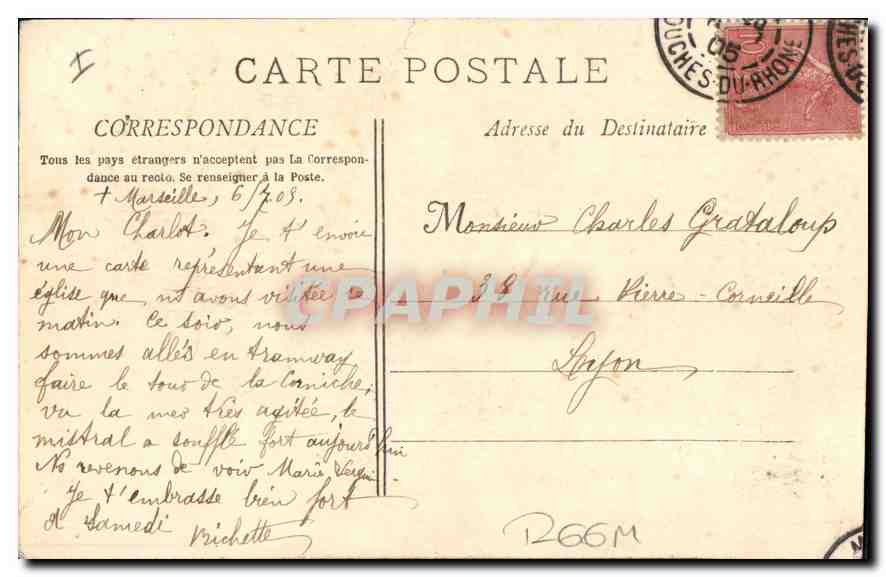 CARTE POSTALE
CORRESPONDANCE
Tous les pays étrangers n'acceptent pas La Correspon-
dance au recto. Se renseigner à la Poste.
+ Marseille, 6/7.05.
Mon Charlot. Je t'envoie
une carte représentant une
église que ns avons visitée ce
matin. Ce soir, nous
sommes allés en tramway
faire le tour de la Corniche,
vu la mer très agitée, le
mistral a soufflé fort aujourd'hui
Ns revenons de voir Marie
Je t'embrasse bien fort
A Samedi
Richette
Adresse du Destinataire
Monsieur Charles Grataloup
38 rue Pierre-Corneille
Lyon
05
BOUCHES-DU-RHONE
CPAPHIL
R66M